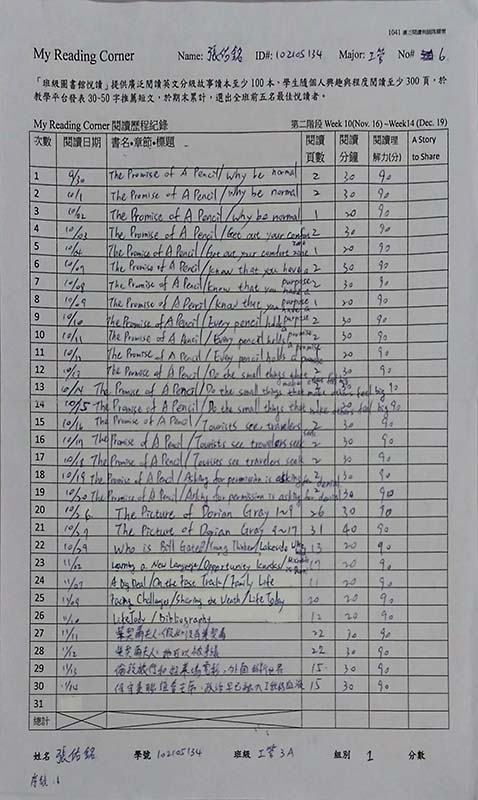 1041
My Reading Corner Name: 張佑銘 ID#: 102105134 Major: 工管 No# 6
「班級圖書館悅讀」提供廣泛閱讀英文分級故事讀本至少 100 本，學生隨個人興趣與程度閱讀至少 300 頁，於
教學平台發表 30-50 字推薦短文，於期末累計，選出全班前五名最佳悅讀者。
My Reading Corner 閱讀歷程紀錄 第二階段 Week 10(Nov. 16) ~Week14 (Dec. 19)
次數 閱讀日期 書名•章節•標題 閱讀頁數 閱讀分鐘 閱讀理解力(分) A Story to Share
1 9/30 The Promise of A Pencil/Why be normal 2 30 90
2 10/1 The Promise of A Pencil/Why be normal 2 30 90
3 10/02 The Promise of A Pencil/Why be normal 1 20 90
4 10/03 The Promise of A Pencil/Get out your comfort zone 2 30 90
5 10/04 The Promise of A Pencil/Get out your comfort zone 1 20 90
6 10/07 The Promise of A Pencil/Know that you have a purpose 2 30 90
7 10/08 The Promise of A Pencil/Know that you have a purpose 2 30 90
8 10/09 The Promise of A Pencil/Know that you have a purpose 1 20 90
9 10/10 The Promise of A Pencil/Every pencil holds a promise 2 30 90
10 10/11 The Promise of A Pencil/Every pencil holds a promise 2 30 90
11 10/12 The Promise of A Pencil/Every pencil holds a promise 20 90
12 10/13 The Promise of A Pencil/Do the small things that make other feel big 2 30 90
13 10/14 The Promise of A Pencil/Do the small things that make others feel big 90
14 10/15 The Promise of A Pencil/Do the small things that make others feel big 20 90
15 10/16 The Promise of A Pencil/Tourists see travelers 2 30 90
16 10/17 The Promise of A Pencil/Tourists see travelers seek 2 30 90
17 10/18 The Promise of A Pencil/Tourises see travelers seek 2 30 90
18 10/19 The Promise of A Pencil/Asking for permission is asking for denial 2 30 90
19 10/20 The Promise of A Pencil/Asking for permission is asking for denial 2 30 90
20 10/26 The Picture of Dorian Gray 1~9 26 30 90
21 10/27 The Picture of Dorian Gray 9~17 31 40 90
22 10/29 Who is Bill Gates/Young Thinker/Lakeside 13 20 90
23 11/02 Learning a New Language/Opportunity Knocks/ 17 20 90
24 11/07 A Big Deal/On the Fase Track/Family Life 11 20 90
25 11/09 Facing Challenges/Sharing the Wealth/Life Today 20 20 90
26 11/10 Life Today/Bibliography 12 20 90
27 11/11 22 30 90
28 11/12 22 30 90
29 11/13 15 30 90
30 11/14 15 30 90
31
總計
姓名 張佑銘 學號 102105134 班級 工管3A 組別 1 分數
序號:6